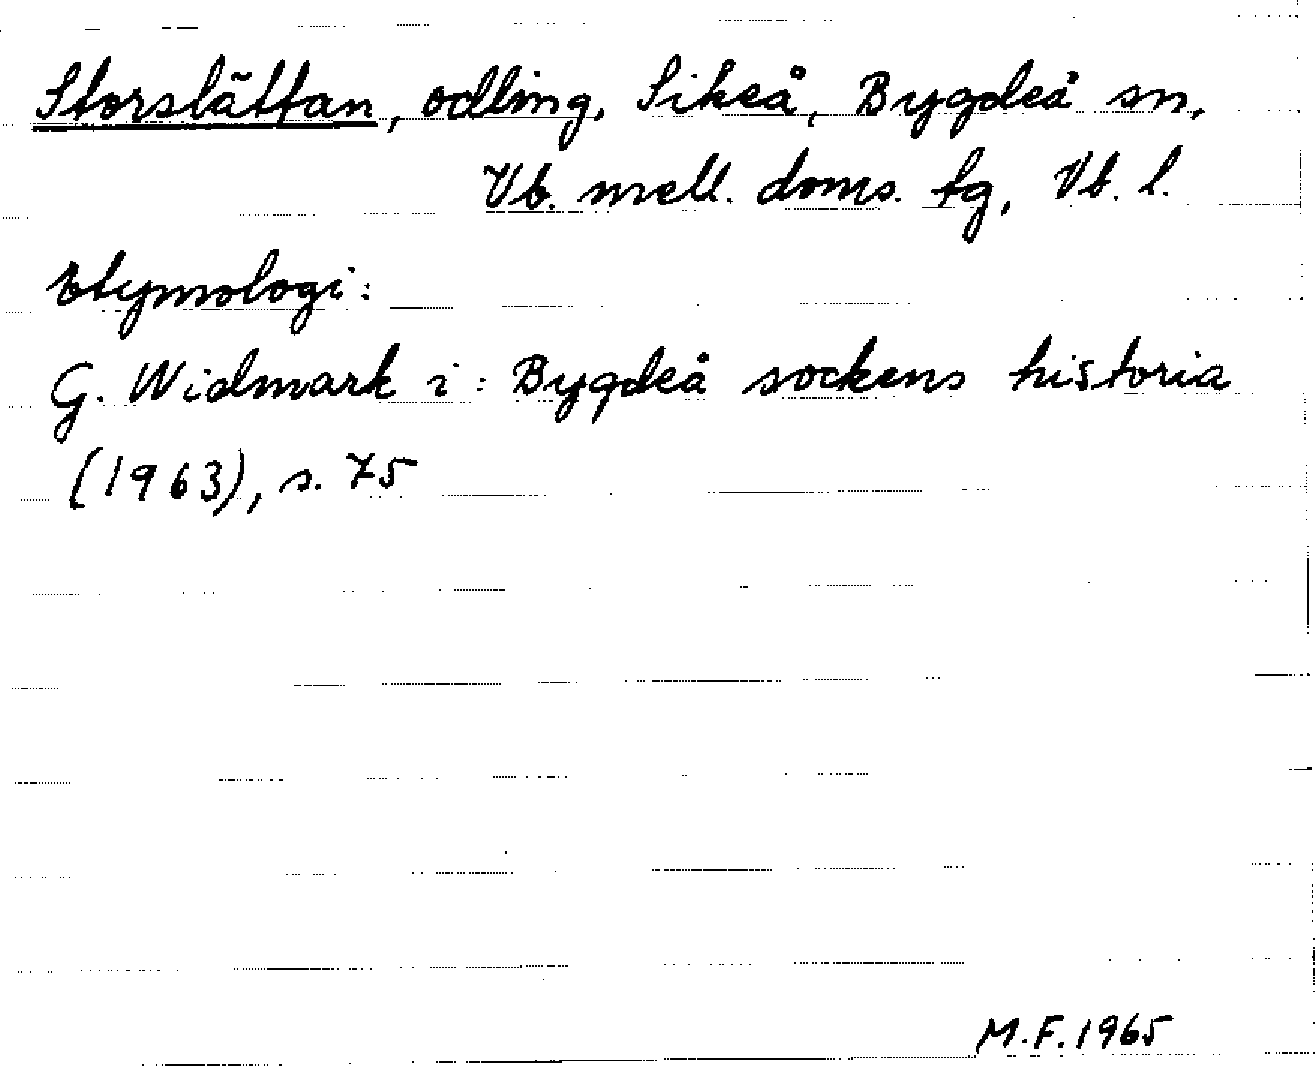 Storslättan, odling, Sikeå, Bygdeå sn,
Vb. mell. doms. tg, Vb. l.
Etymologi:
G. Widmark i: Bygdeå sockens historia
(1963), s. 75
M.F. 1965